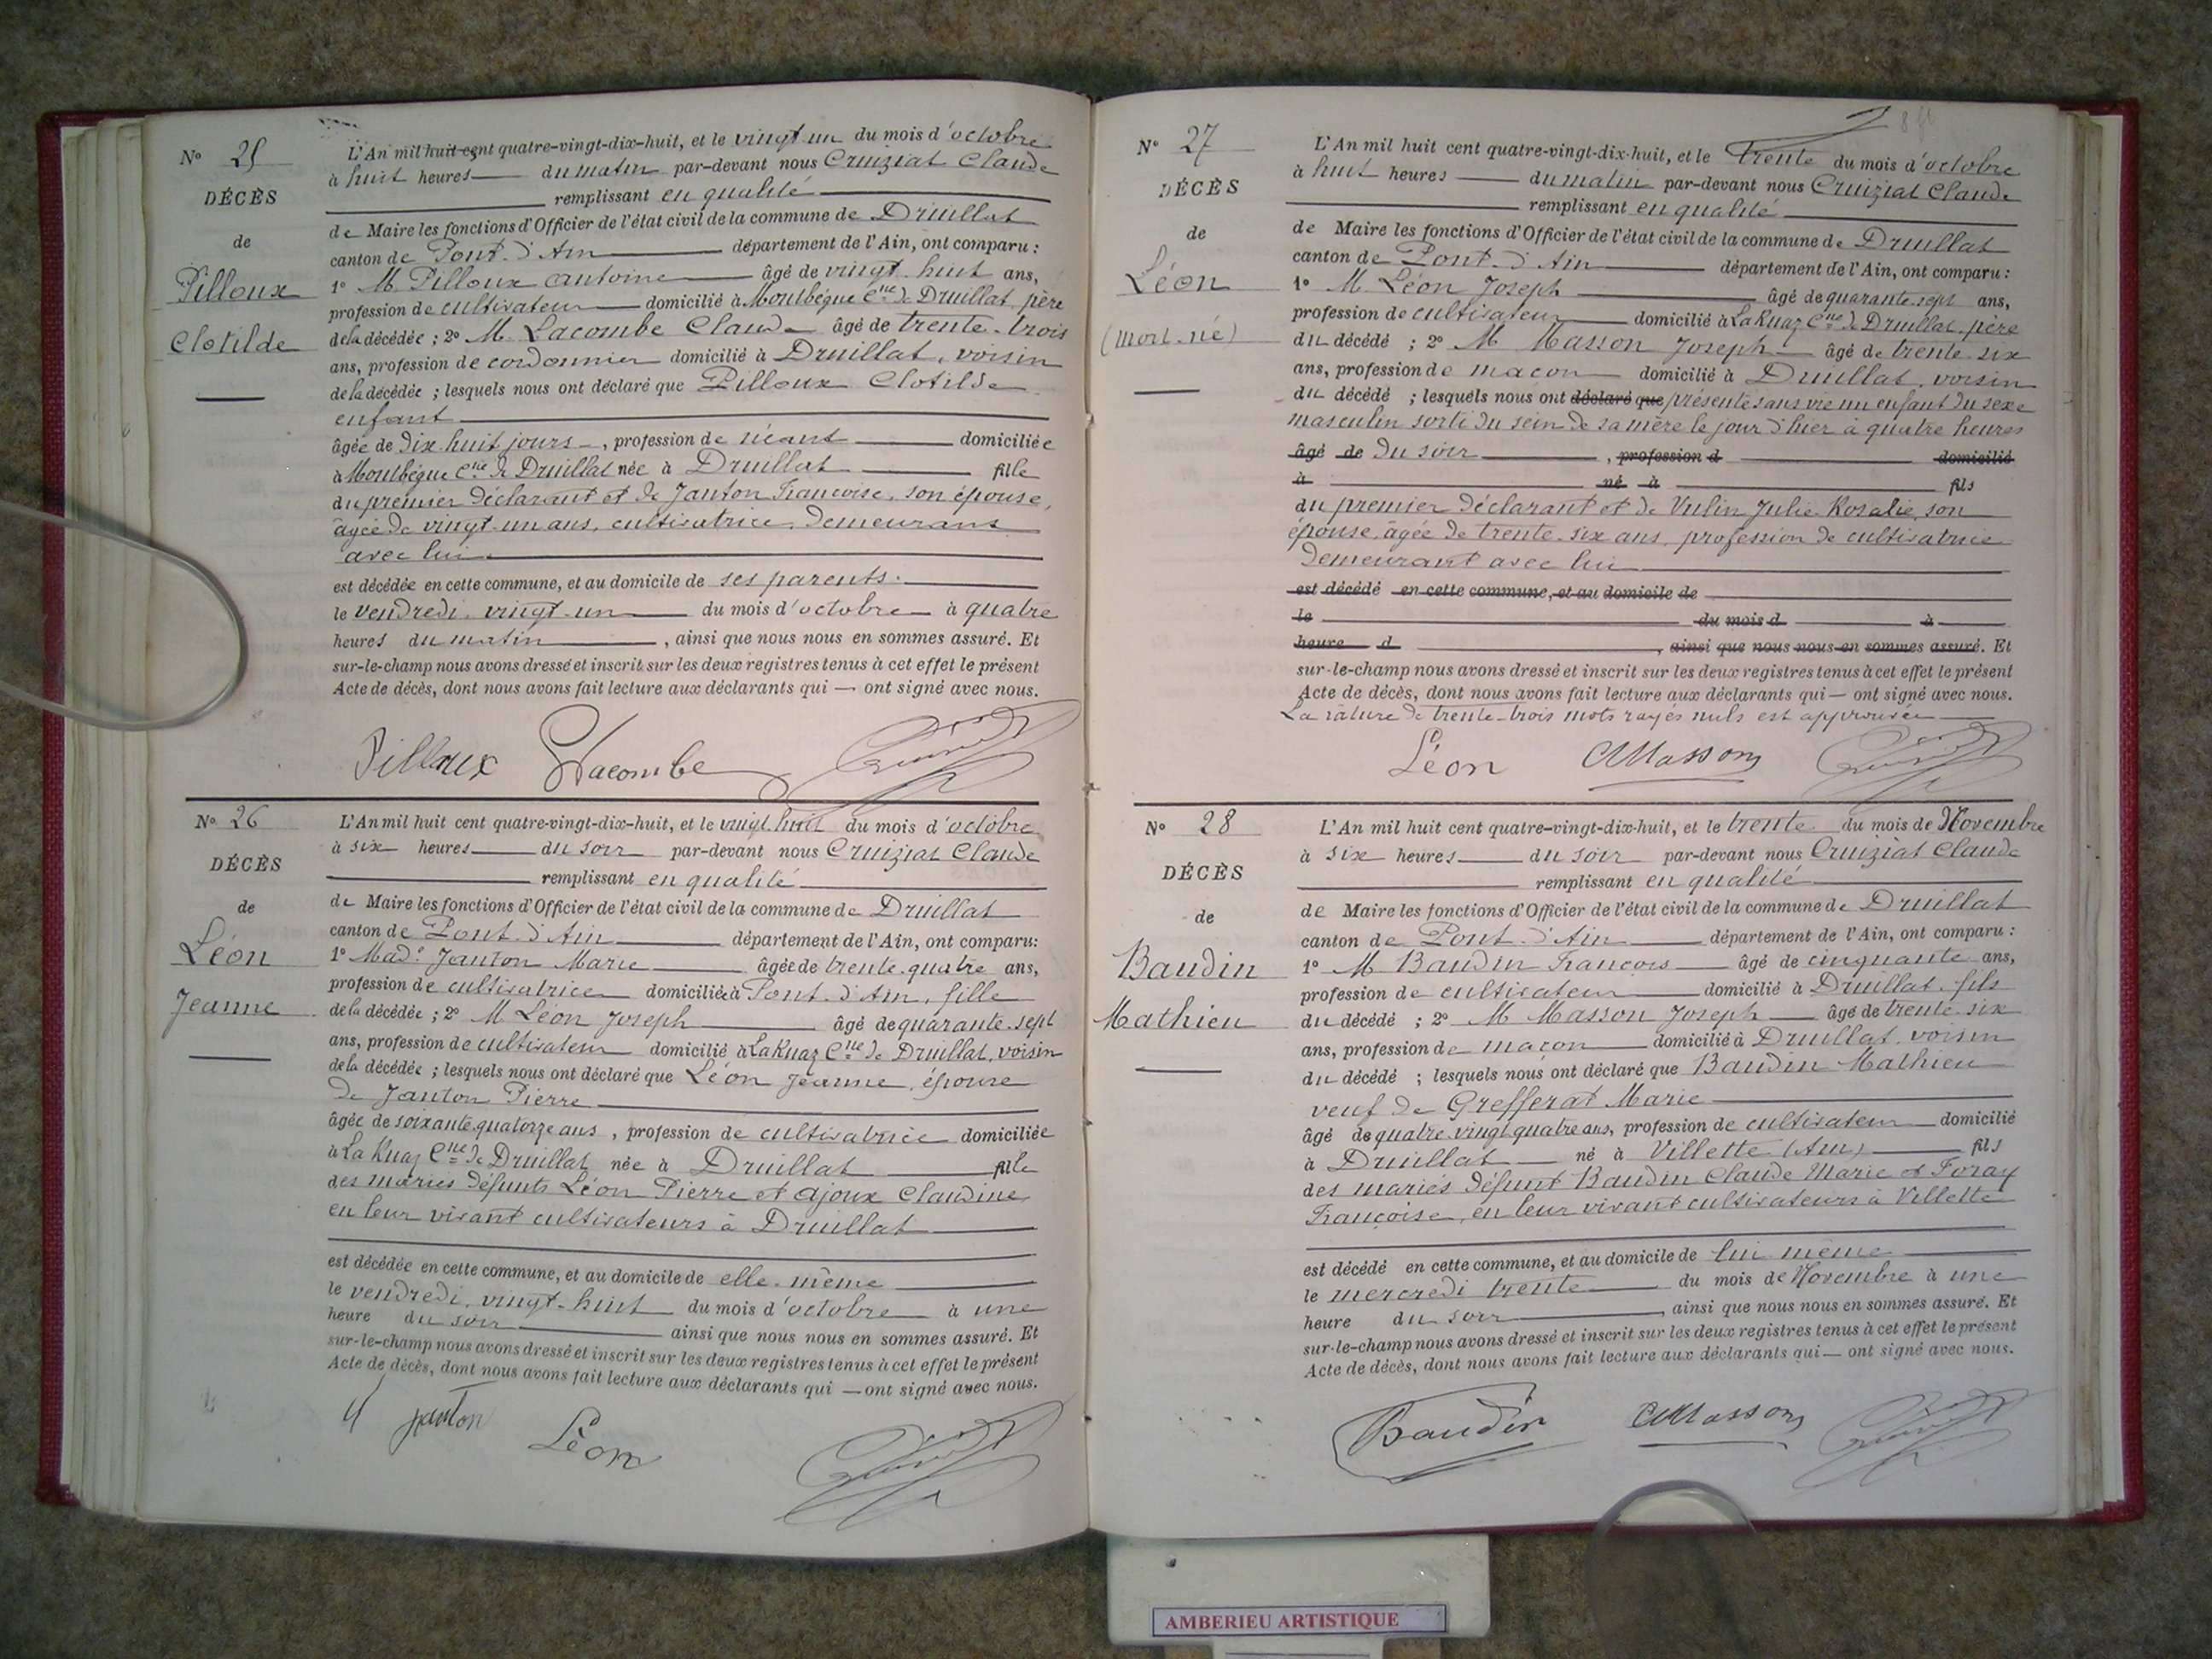 N° 25
DÉCÈS
de
Pilloux
Clotilde
L'An mil huit cent quatre-vingt-dix-huit, et le vingt un du mois d'octobre
à huit heures du matin par-devant nous Cruiziat Claude
remplissant en qualité
de Maire les fonctions d'Officier de l'état civil de la commune de Druillat
canton de Pont-d'Ain département de l'Ain, ont comparu :
1° M. Pilloux Antoine âgé de vingt-huit ans,
profession de cultivateur domicilié à Montbègue Cne de Druillat, père
de la décédée ; 2° M. Lacombe Claude âgé de trente-trois
ans, profession de cordonnier domicilié à Druillat, voisin
de la décédée ; lesquels nous ont déclaré que Pilloux Clotilde
enfant
âgée de dix-huit jours, profession de néant domiciliée
à Montbègue Cne de Druillat née à Druillat fille
du premier déclarant et de Janton Françoise, son épouse,
âgée de vingt-un ans, cultivatrice, demeurant
avec lui
est décédée en cette commune, et au domicile de ses parents.
le vendredi, vingt-un du mois d'octobre à quatre
heures du matin, ainsi que nous nous en sommes assuré. Et
sur-le-champ nous avons dressé et inscrit sur les deux registres tenus à cet effet le présent
Acte de décès, dont nous avons fait lecture aux déclarants qui — ont signé avec nous.
Pilloux Lacombe
N° 26
DÉCÈS
de
Léon
Jeanne
L'An mil huit cent quatre-vingt-dix-huit, et le vingt huit du mois d'octobre
à six heures du soir par-devant nous Cruiziat Claude
remplissant en qualité
de Maire les fonctions d'Officier de l'état civil de la commune de Druillat
canton de Pont-d'Ain département de l'Ain, ont comparu :
1° Made Janton Marie âgée de trente-quatre ans,
profession de cultivatrice domiciliée à Pont-d'Ain, fille
de la décédée ; 2° M. Léon Joseph âgé de quarante-sept
ans, profession de cultivateur domicilié à La Ruaz Cne de Druillat, voisin
de la décédée ; lesquels nous ont déclaré que Léon Jeanne, épouse
de Janton Pierre
âgée de soixante-quatorze ans, profession de cultivatrice domiciliée
à La Ruaz Cne de Druillat née à Druillat fille
des mariés défunts Léon Pierre et Ajoux Claudine,
en leur vivant cultivateurs à Druillat
est décédée en cette commune, et au domicile de elle-même
le vendredi, vingt-huit du mois d'octobre à une
heure du soir ainsi que nous nous en sommes assuré. Et
sur-le-champ nous avons dressé et inscrit sur les deux registres tenus à cet effet le présent
Acte de décès, dont nous avons fait lecture aux déclarants qui — ont signé avec nous.
janton Léon
N° 27
DÉCÈS
de
Léon
(Mort-né)
L'An mil huit cent quatre-vingt-dix-huit, et le trente du mois d'octobre
à huit heures du matin par-devant nous Cruiziat Claude
remplissant en qualité
de Maire les fonctions d'Officier de l'état civil de la commune de Druillat
canton de Pont-d'Ain département de l'Ain, ont comparu :
1° M. Léon Joseph âgé de quarante-sept ans,
profession de cultivateur domicilié à La Ruaz Cne de Druillat, père
du décédé ; 2° M Masson Joseph âgé de trente-six
ans, profession de maçon domicilié à Druillat, voisin
du décédé ; lesquels nous ont déclaré que présenté sans vie un enfant du sexe
masculin sorti du sein de sa mère le jour d'hier à quatre heures
âgé de du soir, profession d domicilié
à né à fils
du premier déclarant et de Vulin Julie Rosalie, son
épouse, âgée de trente-six ans, profession de cultivatrice
demeurant avec lui
est décédé en cette commune, et au domicile de
le du mois d à
heure d, ainsi que nous nous en sommes assuré. Et
sur-le-champ nous avons dressé et inscrit sur les deux registres tenus à cet effet le présent
Acte de décès, dont nous avons fait lecture aux déclarants qui — ont signé avec nous.
La râture de trente-trois mots rayés nuls est approuvée
Léon Masson
N° 28
DÉCÈS
de
Baudin
Mathieu
L'An mil huit cent quatre-vingt-dix-huit, et le trente du mois de Novembre
à six heures du soir par-devant nous Cruiziat Claude
remplissant en qualité
de Maire les fonctions d'Officier de l'état civil de la commune de Druillat
canton de Pont-d'Ain département de l'Ain, ont comparu :
1° M Baudin François âgé de cinquante ans,
profession de cultivateur domicilié à Druillat, fils
du décédé ; 2° M Masson Joseph âgé de trente-six
ans, profession de maçon domicilié à Druillat, voisin
du décédé ; lesquels nous ont déclaré que Baudin Mathieu
veuf de Grefferat Marie
âgé de quatre-vingt-quatre ans, profession de cultivateur domicilié
à Druillat né à Villette (Ain) fils
des mariés défunt Baudin Claude Marie et Foray
Françoise, en leur vivant cultivateurs à Villette
est décédé en cette commune, et au domicile de lui-même
le mercredi trente du mois de Novembre à une
heure du soir, ainsi que nous nous en sommes assuré. Et
sur-le-champ nous avons dressé et inscrit sur les deux registres tenus à cet effet le présent
Acte de décès, dont nous avons fait lecture aux déclarants qui — ont signé avec nous.
Baudin Masson
AMBERIEU ARTISTIQUE